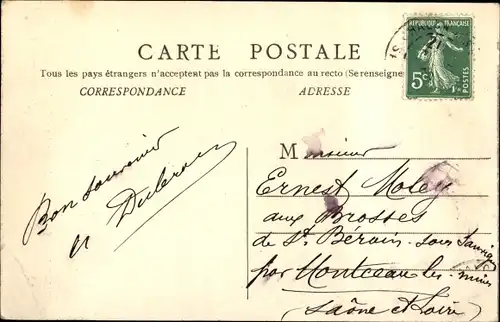 CARTE POSTALE
Tous les pays étrangers n'acceptent pas la correspondance au recto (Se renseigne
CORRESPONDANCE
ADRESSE
REPUBLIQUE FRANÇAISE
5c
POSTES
Bon souvenir
Monsieur
Ernest Moley
aux Brosses
de St. Bérain-sous Sanvignes
par Montceau les-mines
(Saône et Loire)